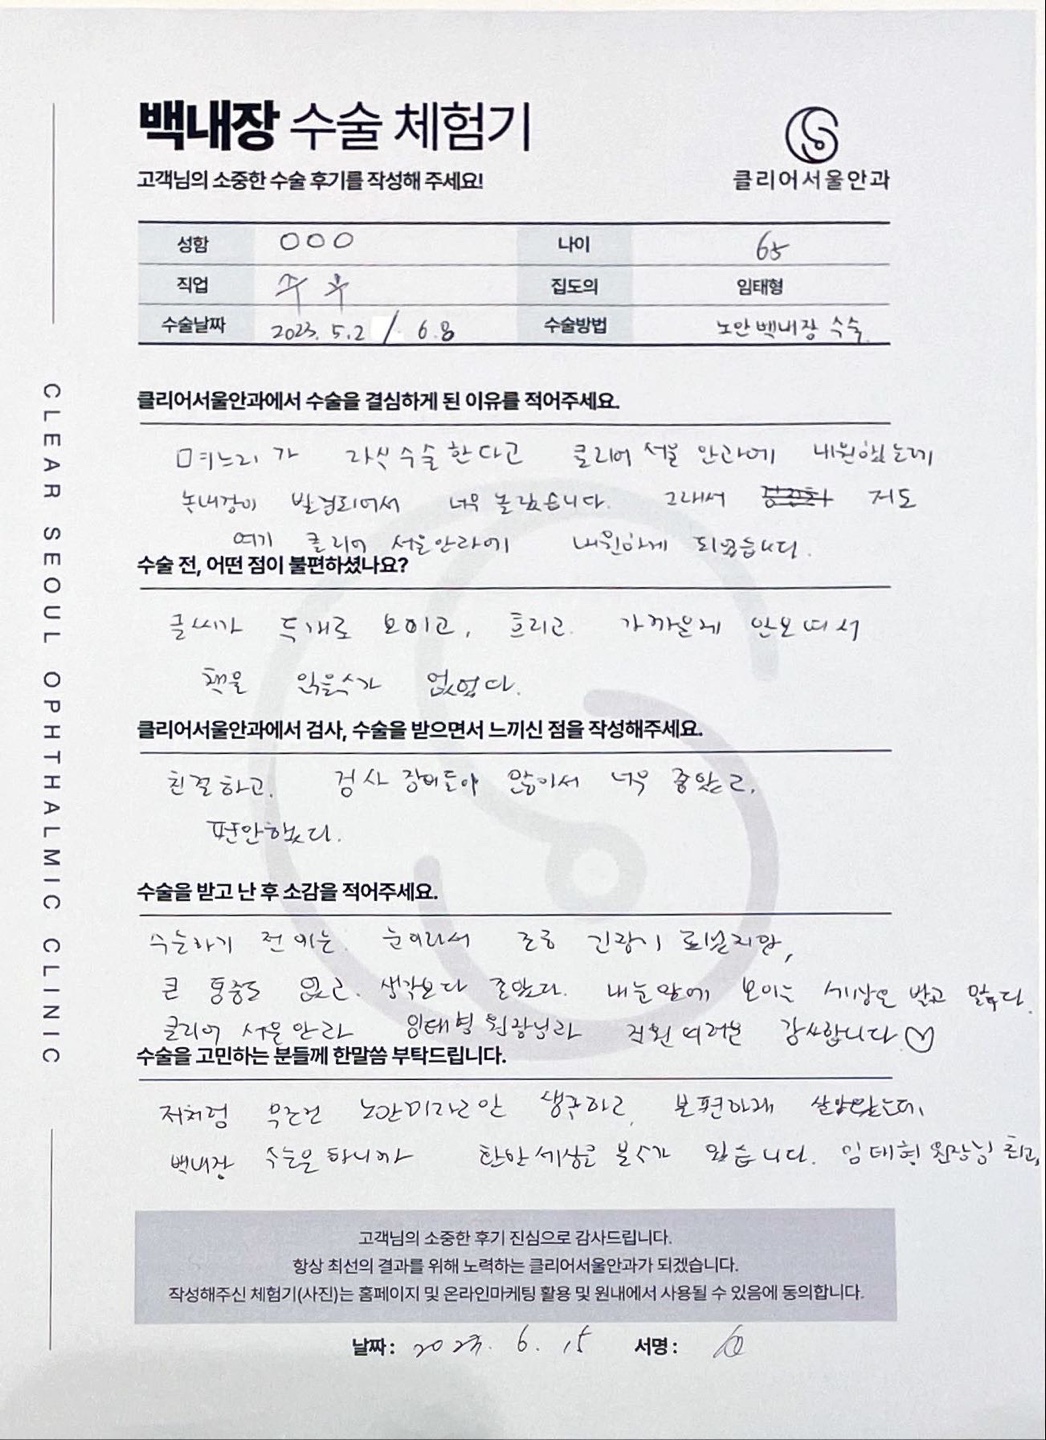 백내장 수술 체험기
고객님의 소중한 수술 후기를 작성해 주세요!
클리어서울안과
성함 ○○○ 나이 65
직업 주부 집도의 임태형
수술날짜 2023. 5.2 / 6.8 수술방법 노안백내장 수술
CLEAR SEOUL OPHTHALMIC CLINIC
클리어서울안과에서 수술을 결심하게 된 이유를 적어주세요.
며느리가 라식수술한다고 클리어 서울 안과에 내원했는데
녹내장이 발견되어서 너무 놀랐습니다. 그래서 저도
여기 클리어 서울안과에 내원하게 되었습니다.
수술 전, 어떤 점이 불편하셨나요?
글씨가 두개로 보이고, 흐리고. 가까운게 안보여서
책을 읽을수가 없었다.
클리어서울안과에서 검사, 수술을 받으면서 느끼신 점을 작성해주세요.
친절하고. 검사 장비들이 많이서 너무 좋았고,
편안했다.
수술을 받고 난 후 소감을 적어주세요.
수술하기 전에는. 눈이라서 조금 긴장이 되었지만,
큰 통증도 없고. 생각보다 좋았다. 내눈앞에 보이는 세상은 밝고 맑다.
클리어 서울안과 임태형 원장님과 직원 여러분 감사합니다 ♡
수술을 고민하는 분들께 한말씀 부탁드립니다.
저처럼 무조건 노안이라고만 생각하고, 불편하게 살았었는데,
백내장 수술을 하니까 환한 세상을 볼수가 있습니다. 임태형 원장님 최고,
고객님의 소중한 후기 진심으로 감사드립니다.
항상 최선의 결과를 위해 노력하는 클리어서울안과가 되겠습니다.
작성해주신 체험기(사진)는 홈페이지 및 온라인마케팅 활용 및 원내에서 사용될 수 있음에 동의합니다.
날짜 : 2023. 6. 15 서명 :